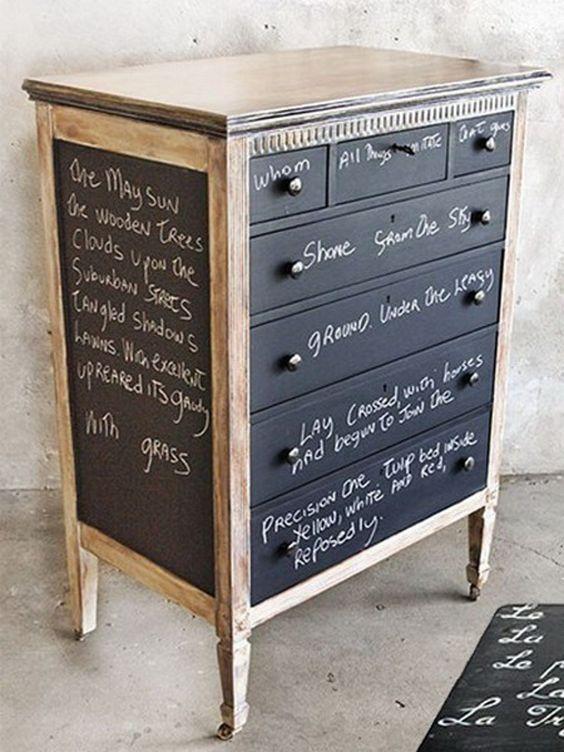 The May Sun
The wooden Trees
Clouds upon the
Suburban Streets
Tangled Shadows
Lawns. With excellent
upreared its gaudy
With grass
whom
All Things imitate
That gives
Shone from the Sky
ground. Under the leafy
Lay Crossed, with houses
had begun to Join the
Precision the Tulip bed inside
Yellow, white and Red,
Reposedly.
Le
La
Le
La
La